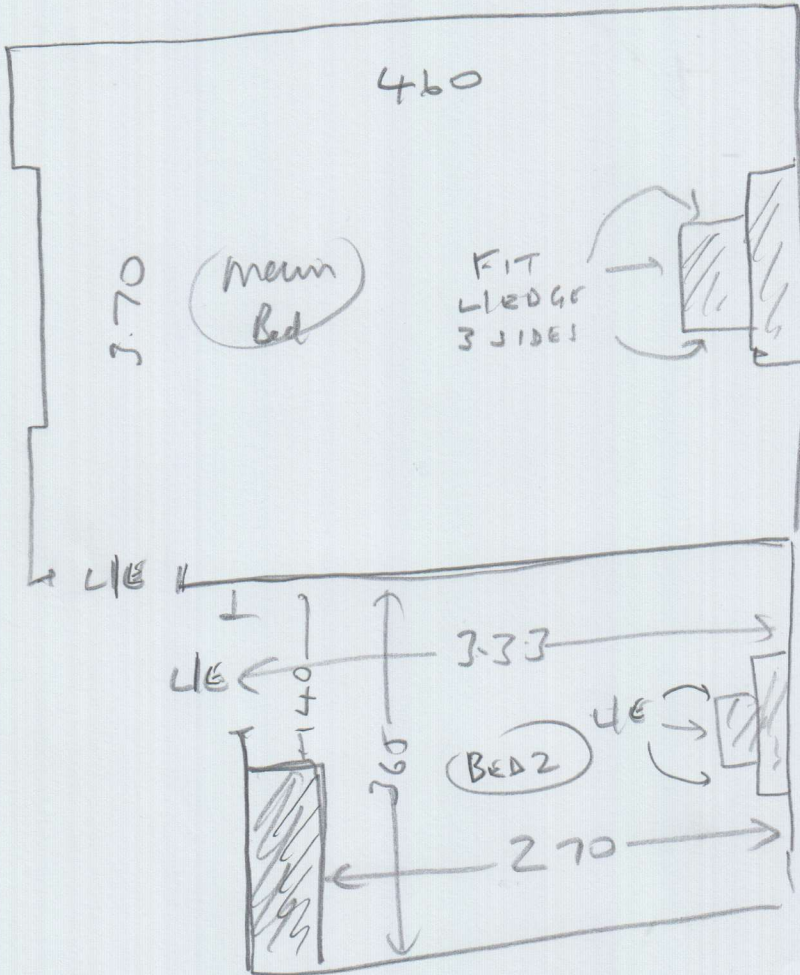 460
3.70
Main
Bed
FIT
L/EDGE
3 SIDES
L/E
3.33
L/E
1.40
365
L/E
BED 2
270